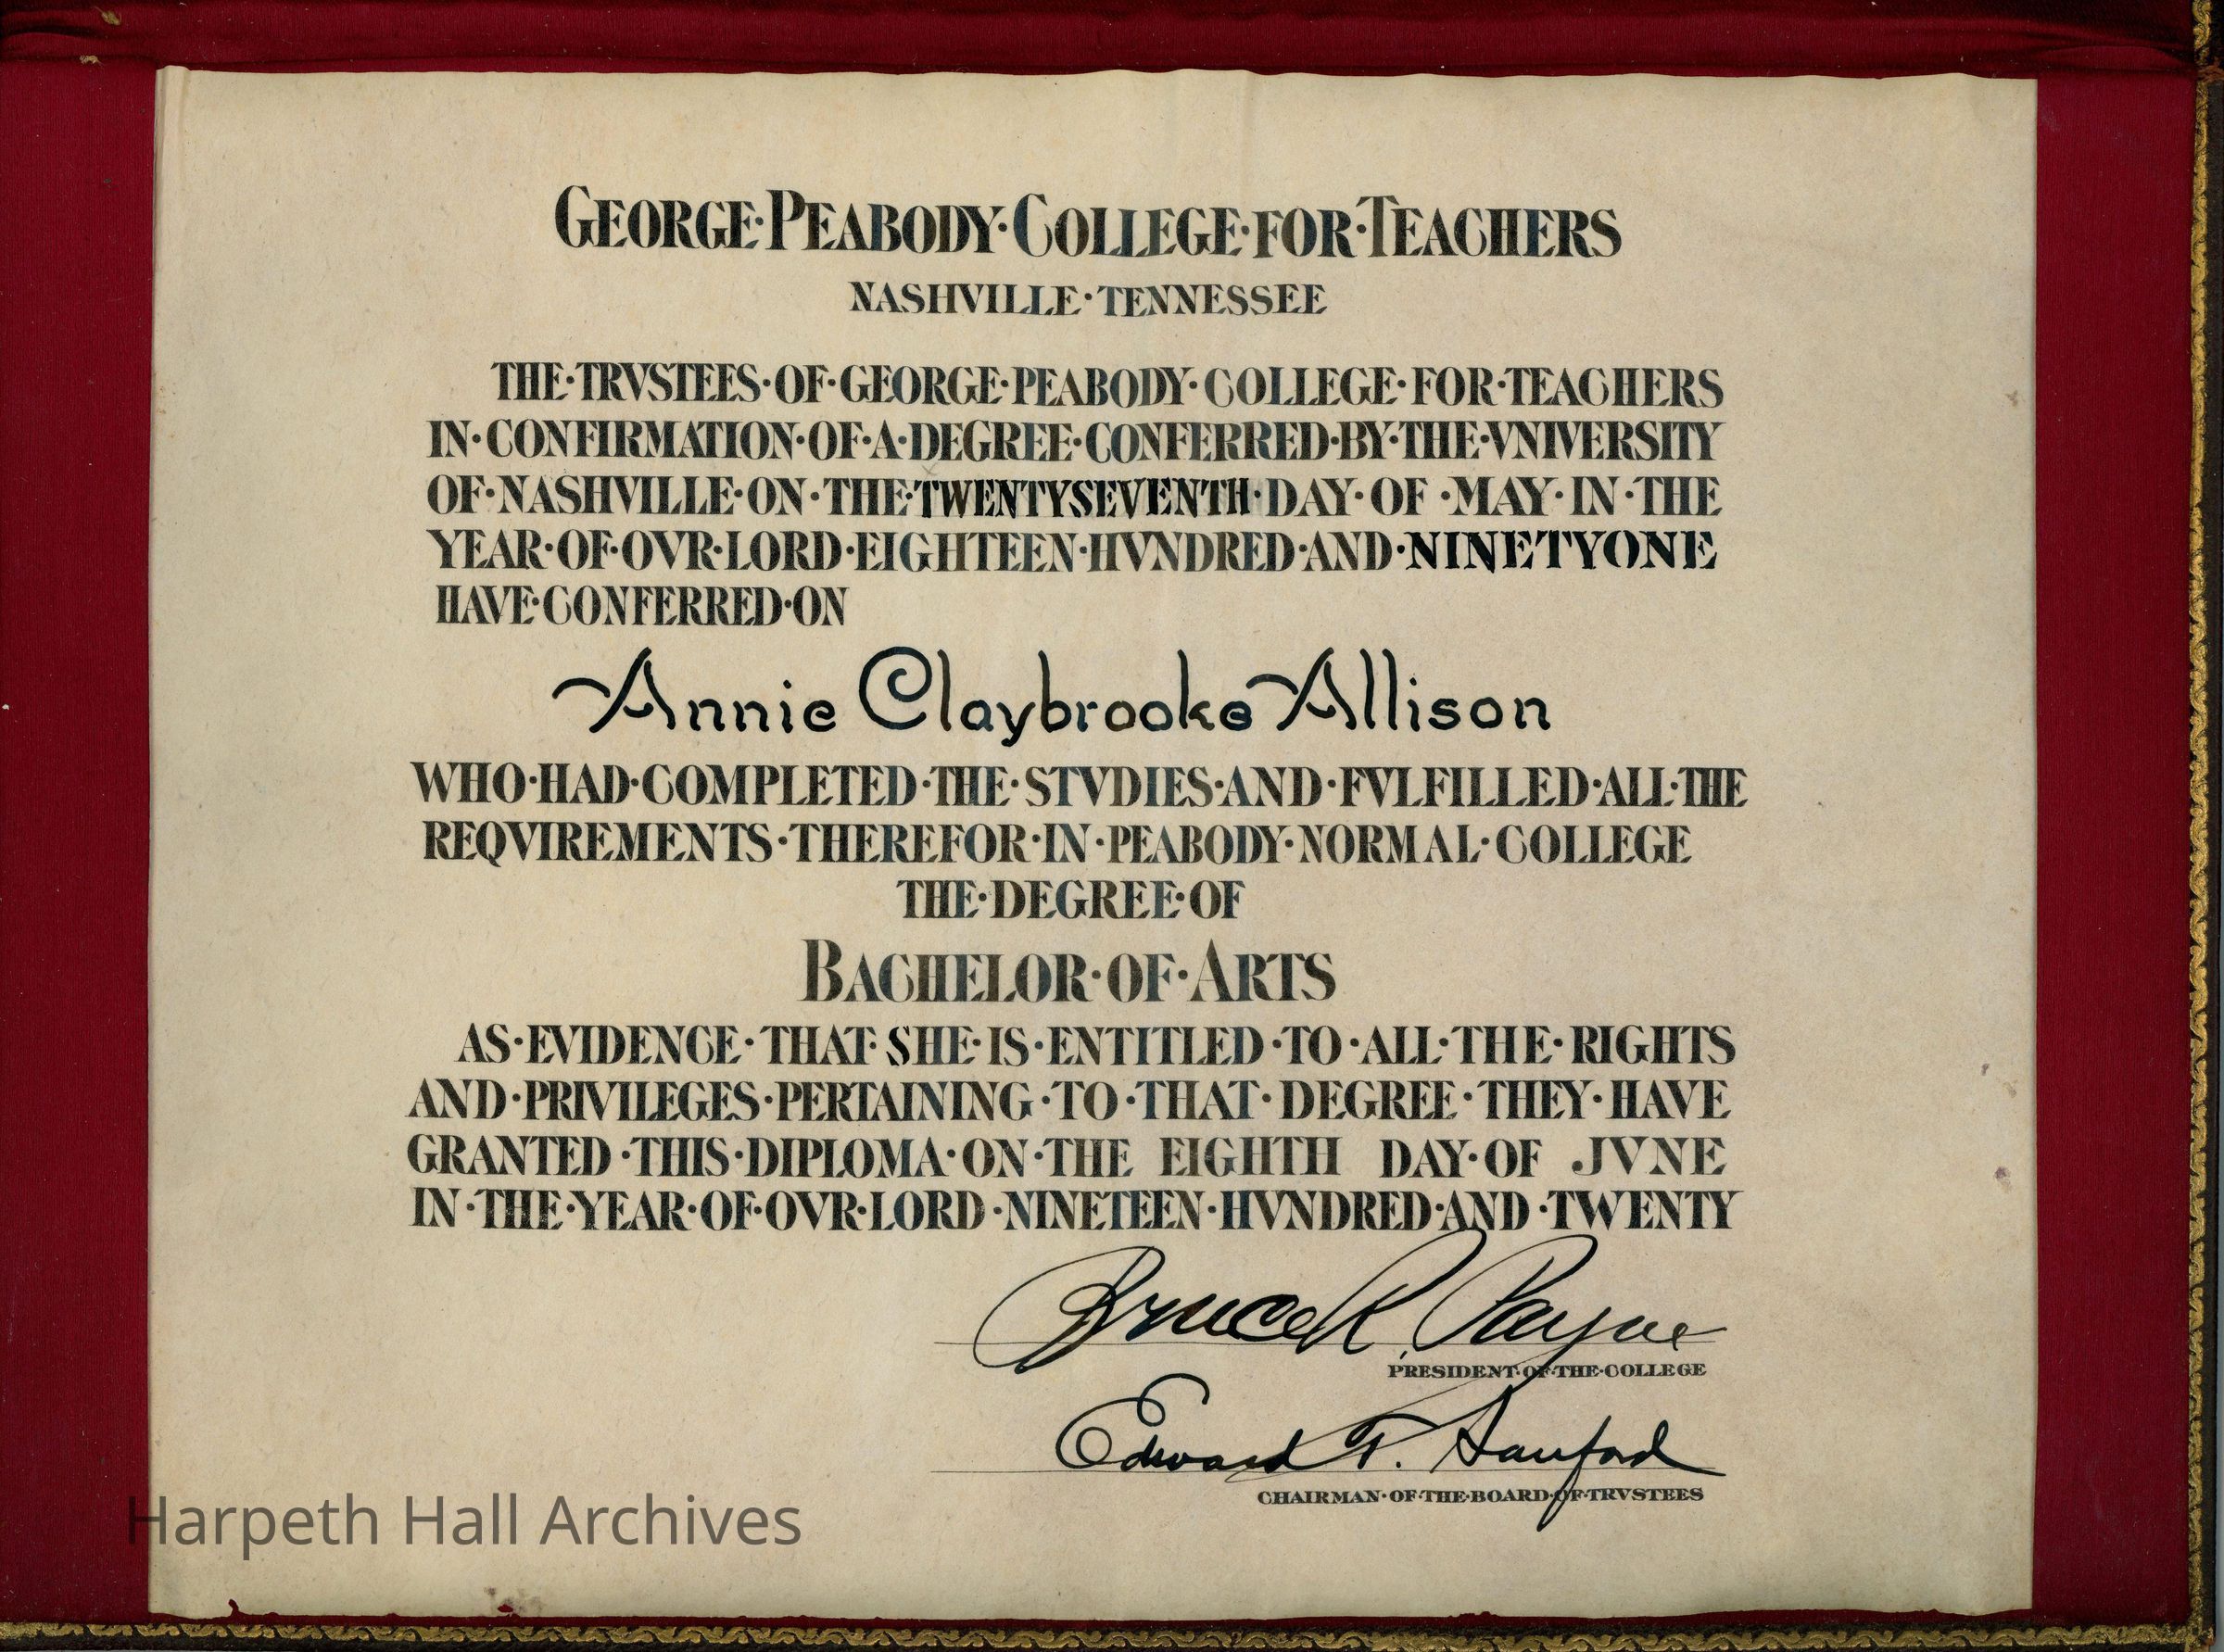 GEORGE·PEABODY·COLLEGE·FOR·TEACHERS
NASHVILLE·TENNESSEE
THE·TRVSTEES·OF·GEORGE·PEABODY·COLLEGE·FOR·TEACHERS
IN·CONFIRMATION·OF·A·DEGREE·CONFERRED·BY·THE·VNIVERSITY
OF·NASHVILLE·ON·THE·TWENTYSEVENTH·DAY·OF·MAY·IN·THE
YEAR·OF·OVR·LORD·EIGHTEEN·HVNDRED·AND·NINETYONE
HAVE·CONFERRED·ON
Annie Claybrooke Allison
WHO·HAD·COMPLETED·THE·STVDIES·AND·FVLFILLED·ALL·THE
REQVIREMENTS·THEREFOR·IN·PEABODY·NORMAL·COLLEGE
THE·DEGREE·OF
BACHELOR·OF·ARTS
AS·EVIDENCE·THAT·SHE·IS·ENTITLED·TO·ALL·THE·RIGHTS
AND·PRIVILEGES·PERTAINING·TO·THAT·DEGREE·THEY·HAVE
GRANTED·THIS·DIPLOMA·ON·THE EIGHTH DAY·OF JVNE
IN·THE·YEAR·OF·OVR·LORD·NINETEEN·HVNDRED·AND·TWENTY
Bruce R. Payne
PRESIDENT·OF·THE·COLLEGE
Edward T. Sanford
CHAIRMAN·OF·THE·BOARD·OF·TRVSTEES
Harpeth Hall Archives